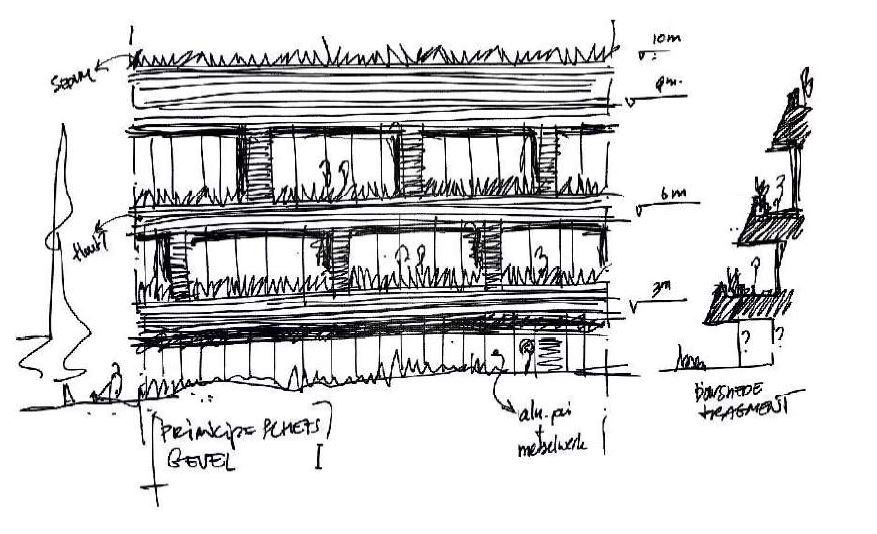 10m
Sedum
6m
Hout?
3m
? ?
DOORSNEDE
FRAGMENT
alu. pui
+
metselwerk
PRINCIPE SCHETS
GEVEL I